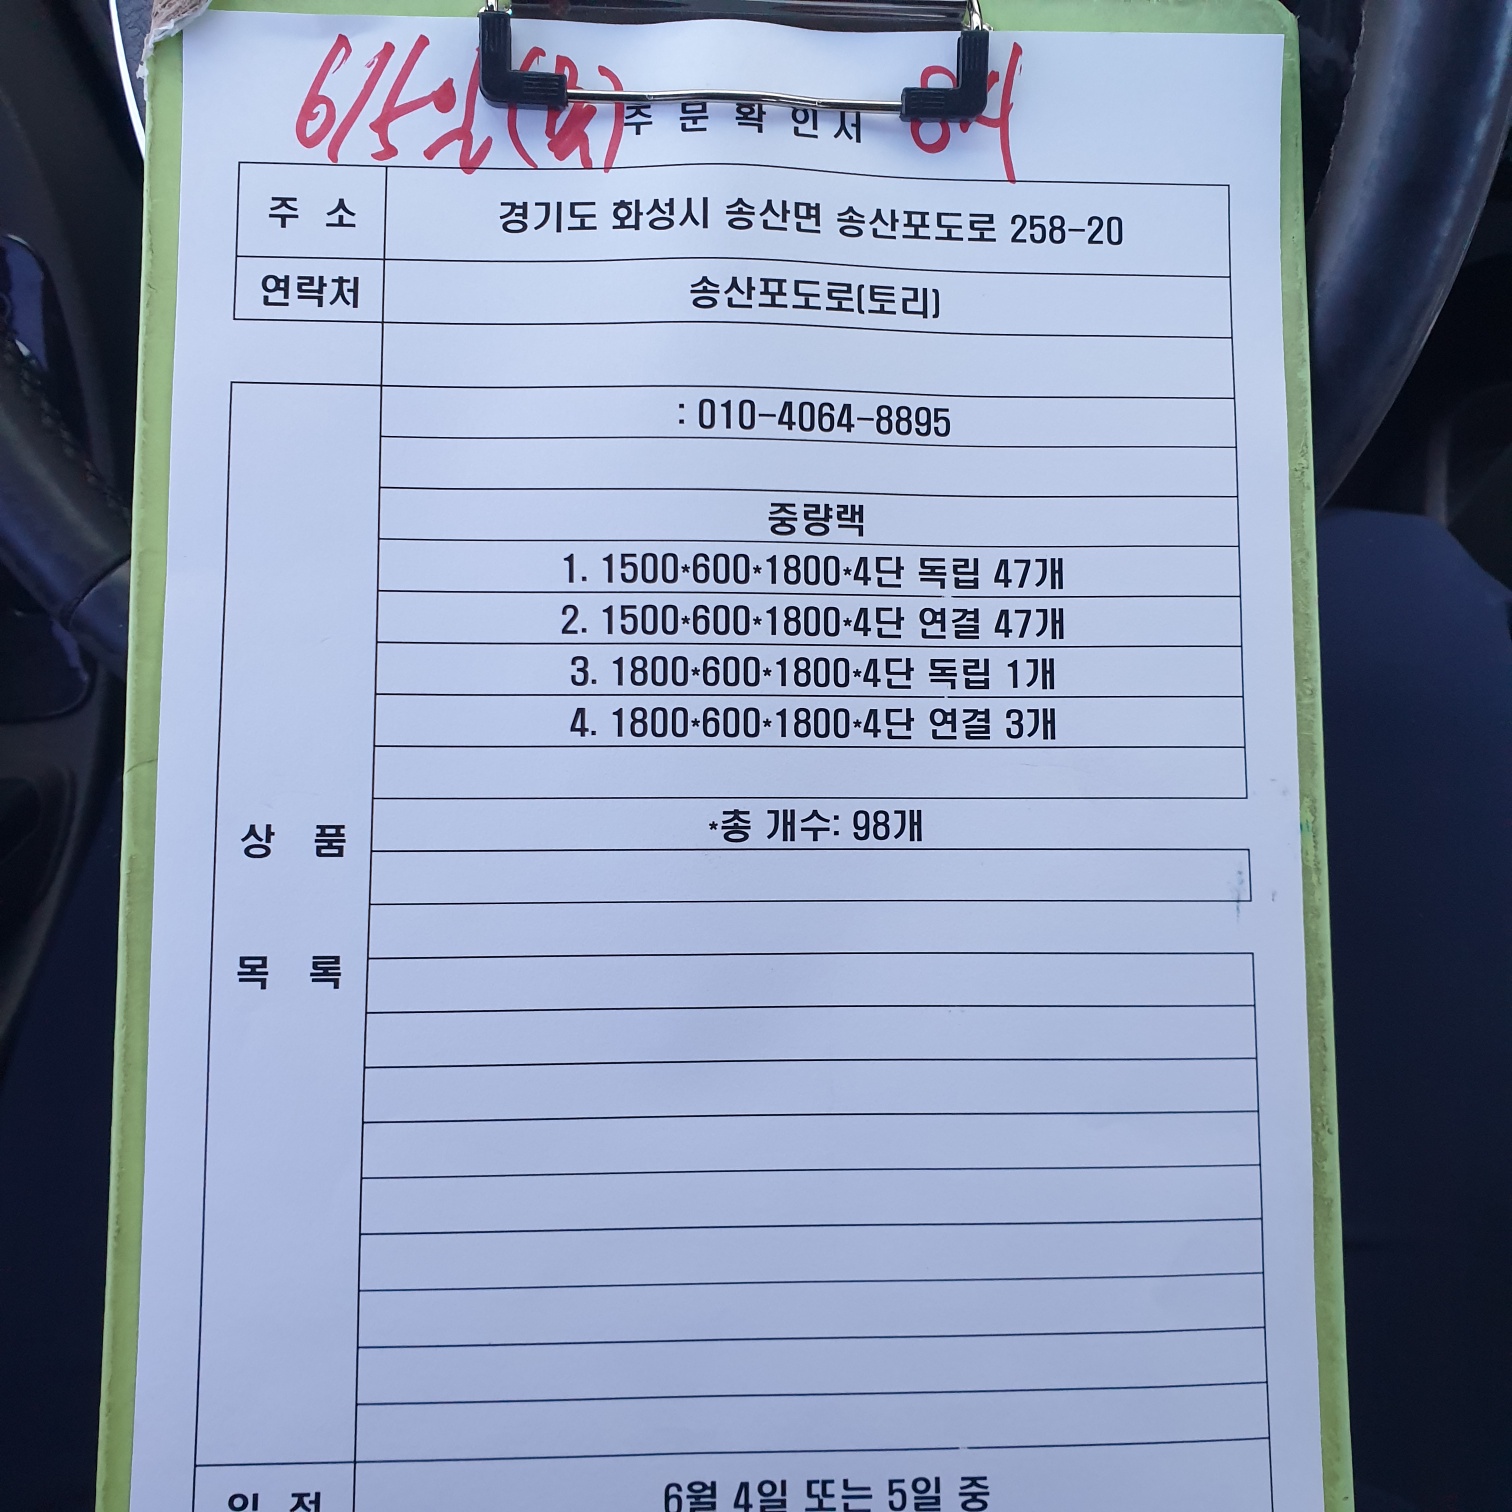 6/5일
주 문 확 인 서
주 소 경기도 화성시 송산면 송산포도로 258-20
연락처 송산포도로(토리)
: 010-4064-8895
중량랙
1. 1500*600*1800*4단 독립 47개
2. 1500*600*1800*4단 연결 47개
3. 1800*600*1800*4단 독립 1개
4. 1800*600*1800*4단 연결 3개
*총 개수: 98개
상 품
목 록
일 정 6월 4일 또는 5일 중